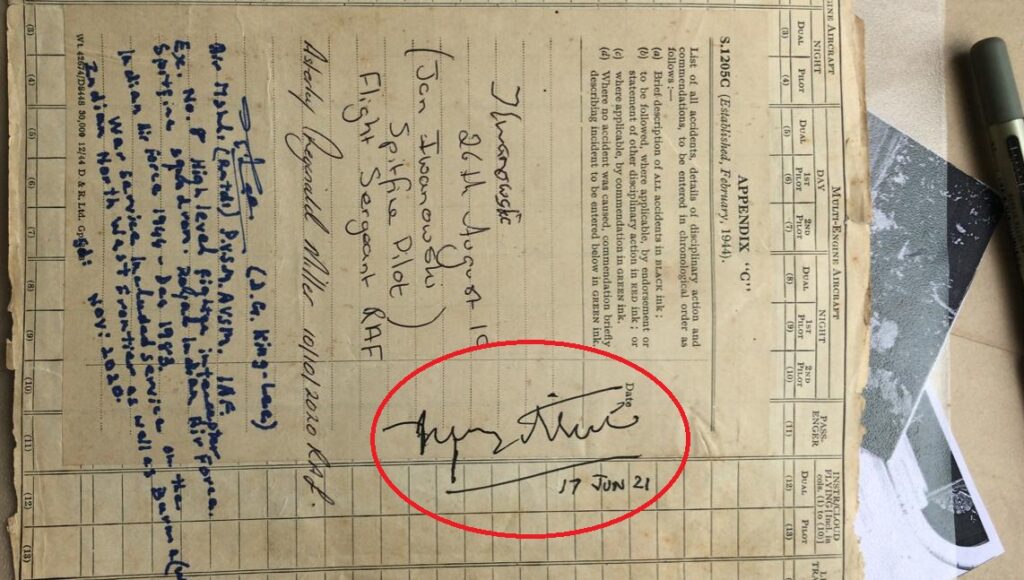 MULTI-ENGINE AIRCRAFT
NIGHT DAY NIGHT PASS-ENGER
DUAL PILOT DUAL 1ST PILOT 2ND PILOT DUAL 1ST PILOT 2ND PILOT DUAL PILOT
(3) (4) (5) (6) (7) (8) (9) (10) (11) (12) (13)
APPENDIX "C"
S.1205C (Established, February, 1944).
List of all accidents, details of disciplinary action and
commendations, to be entered in chronological order as
follows :—
(a) Brief description of ALL accidents in BLACK ink ;
(b) to be followed, where applicable, by endorsement or
statement of other disciplinary action in RED ink ; or
(c) where applicable, by commendation in GREEN ink.
(d) Where no accident was caused, commendation briefly
describing incident to be entered below in GREEN ink.
Date
17 JUN 21
26th August
(Jan Iwanowski
Spitfire Pilot)
Flight Sergeant RAF
Reginald Miller 10/01/2020 RAF.
(D.G. King-Lee)
Air Marshl. (Retd) P.V.S.M. A.V.S.M. IAF.
Ex. No. 8 High level fighter interceptor
Spitfire squadron. Royal Indian Air Force.
Indian Air force 1944 - Dec 1983.
War service included service on the
Indian North West Frontier as well as Burma
Nov: 2020.
35,000 12/44 D & R. Ltd.
(3) (4) (5) (6) (7) (8) (9) (10) (11) (12) (13)